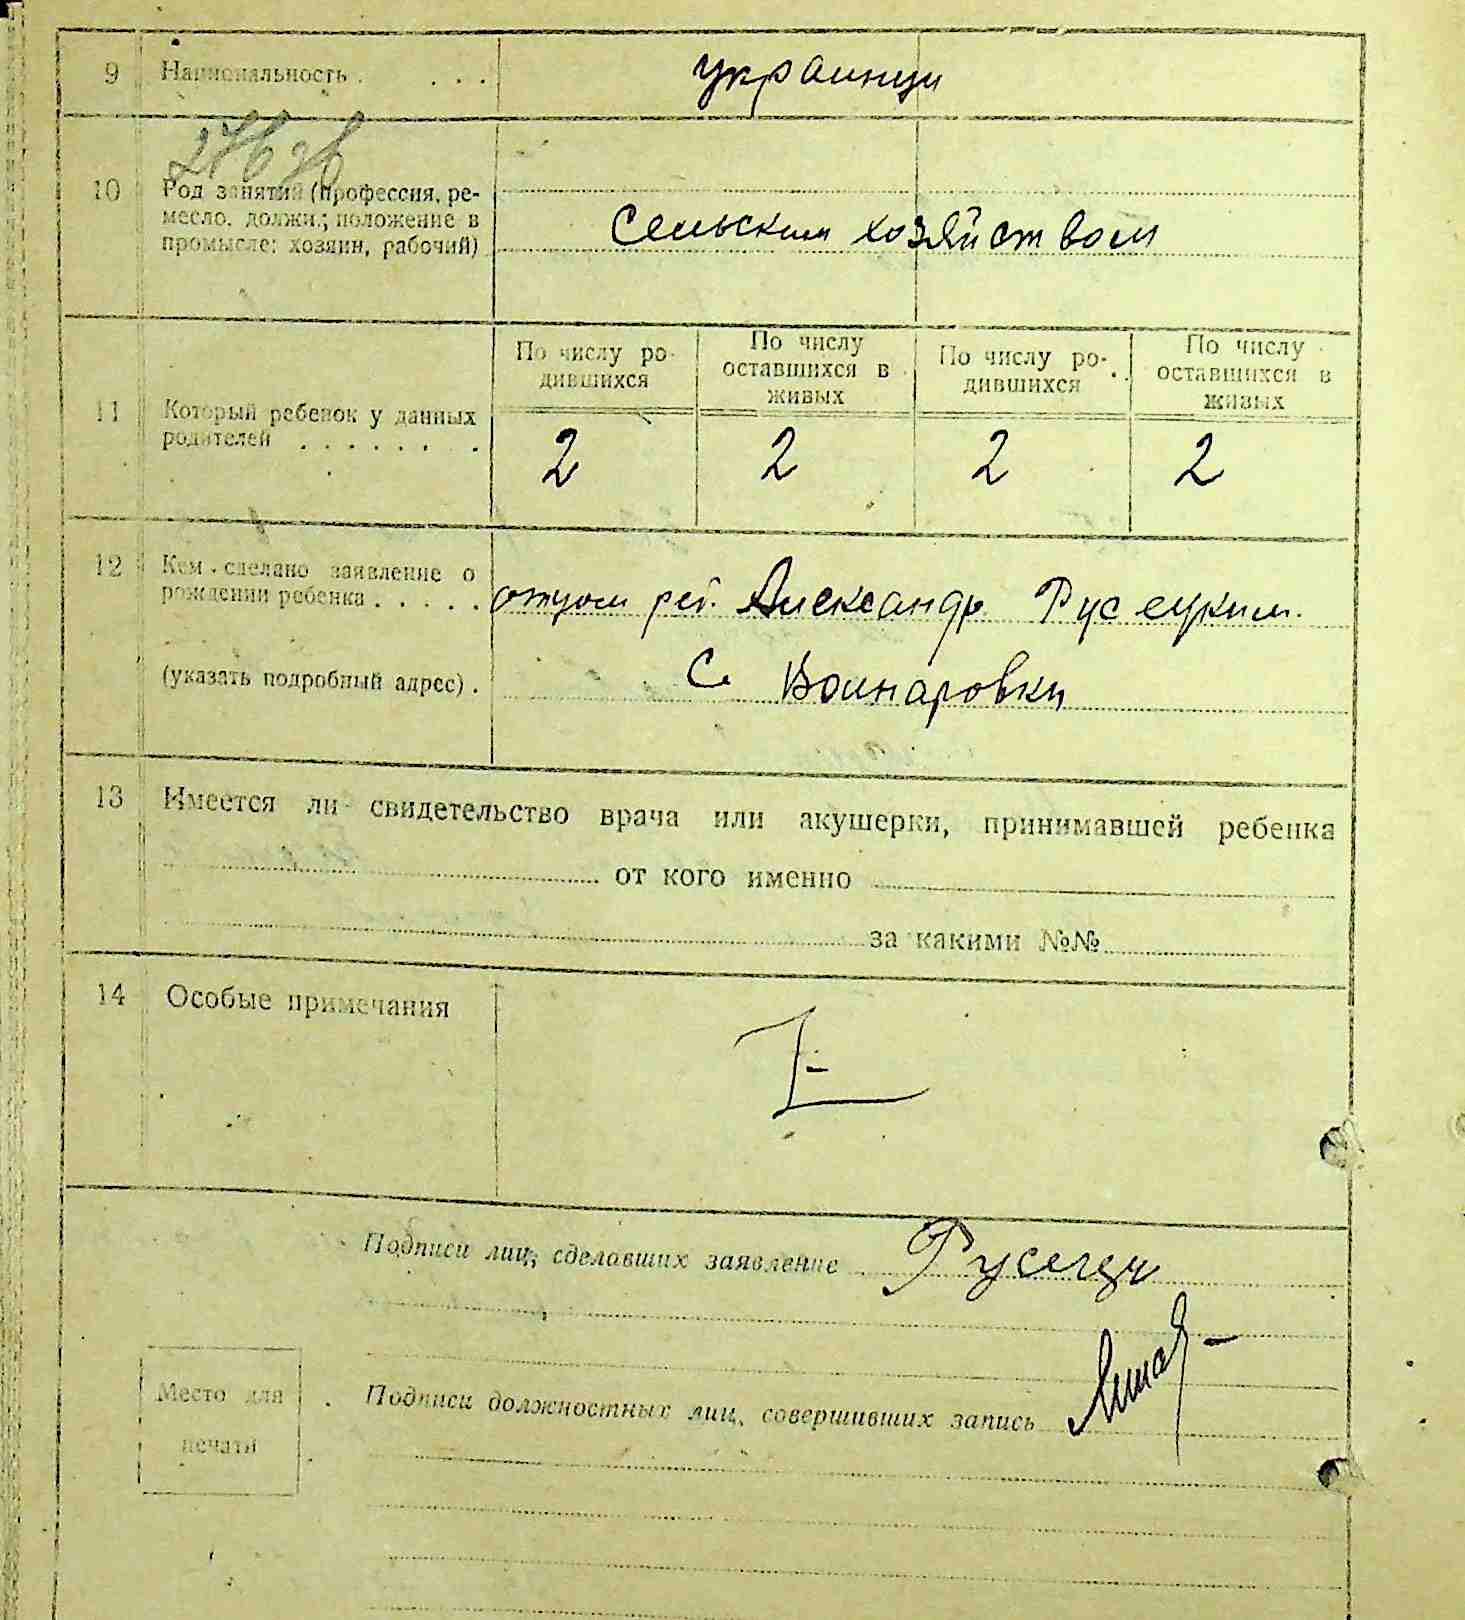 9 Национальность . . . . украинци
10 Род занятий (профессия, ре-
месло, должн.; положение в
промысле: хозяин, рабочий)
Сельским хозяйством
11 Который ребенок у данных
родителей . . . . . . .
По числу ро-
дившихся
По числу
оставшихся в
живых
По числу ро-
дившихся
По числу
оставшихся в
живых
2 2 2 2
12 Кем сделано заявление о
рождении ребенка . . . . .
отцом реб. Александр Русецким.
(указать подробный адрес) .
С Воинаровки
13 Имеется ли свидетельство врача или акушерки, принимавшей ребенка
от кого именно
за какими №№
14 Особые примечания
Подписи лиц, сделавших заявление
Место для
печати
Подписи должностных лиц, совершивших запись